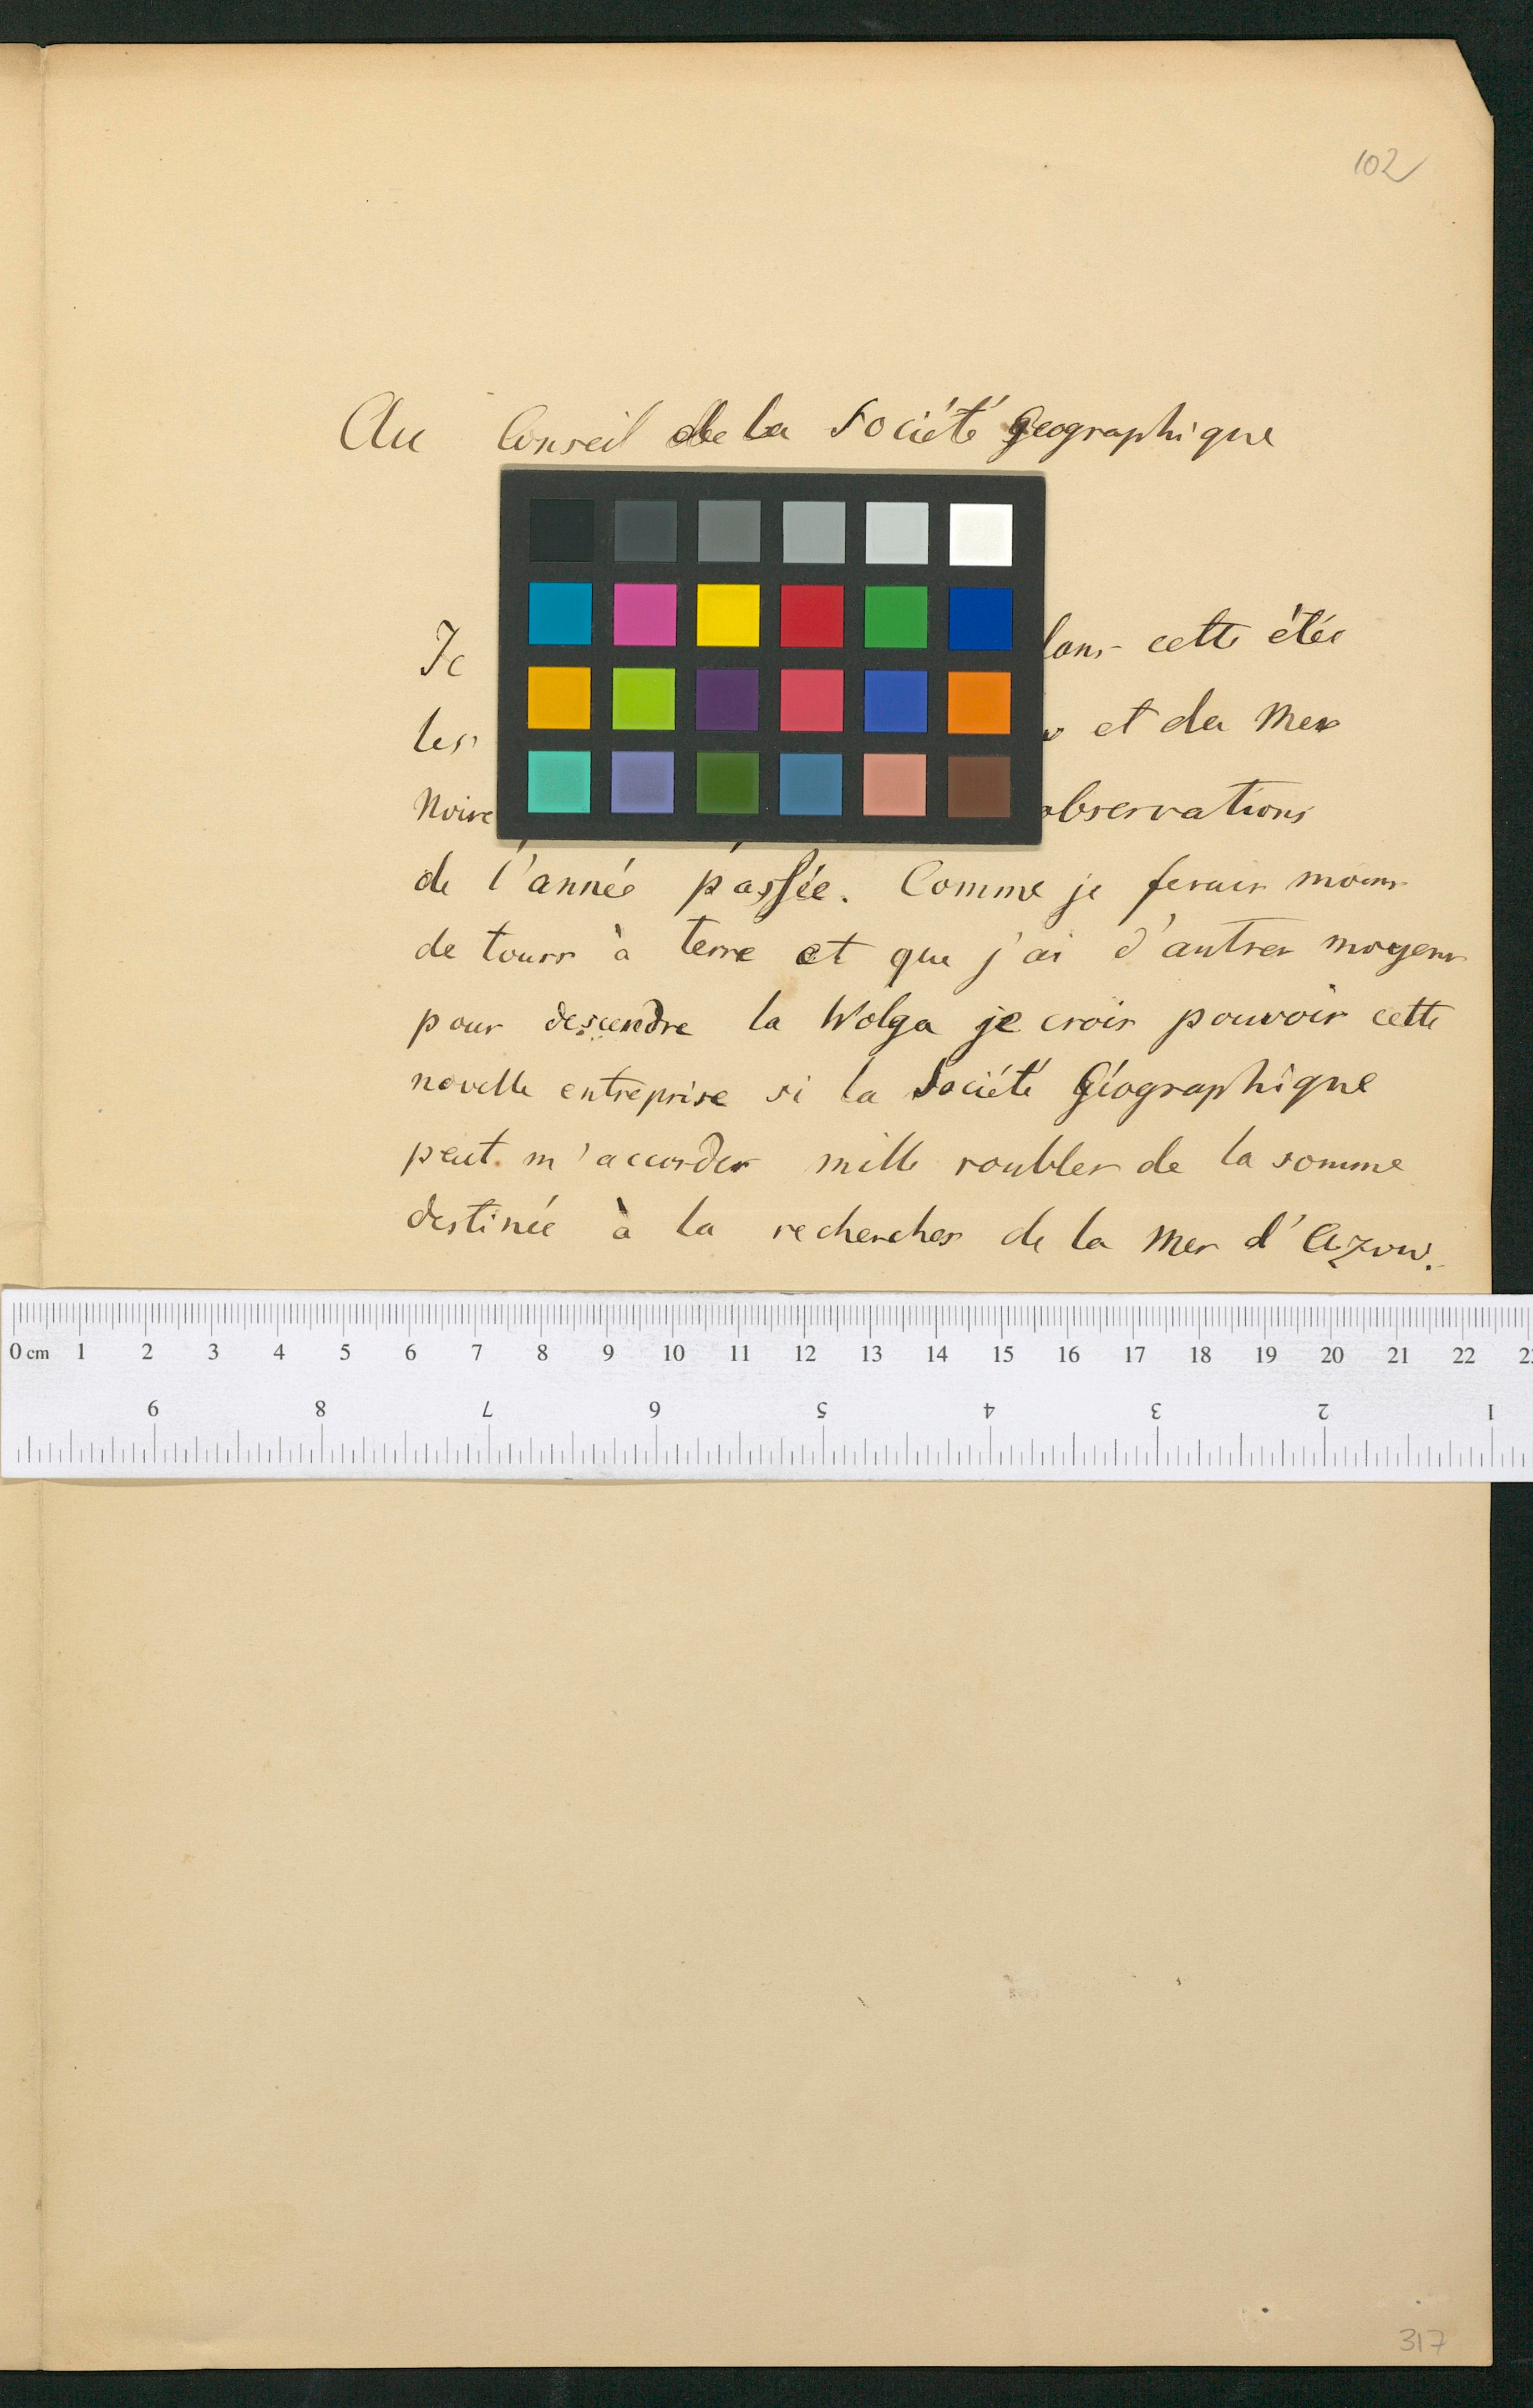 102
Au Conseil de la Société Geographique
Je
cette étée
les et da Mer
Noire observations
de l'année passée. Comme je ferais moins
de tours à terre et que j'ai d'autres moyens
pour descendre la Wolga je crois pouvoir cette
novelle entreprise si la Société Géographique
peut m'accorder mille roubles de la somme
destinée à la recherches de la Mer d'Azow.
0 cm 1 2 3 4 5 6 7 8 9 10 11 12 13 14 15 16 17 18 19 20 21 22
9 8 7 6 5 4 3 2 1
317